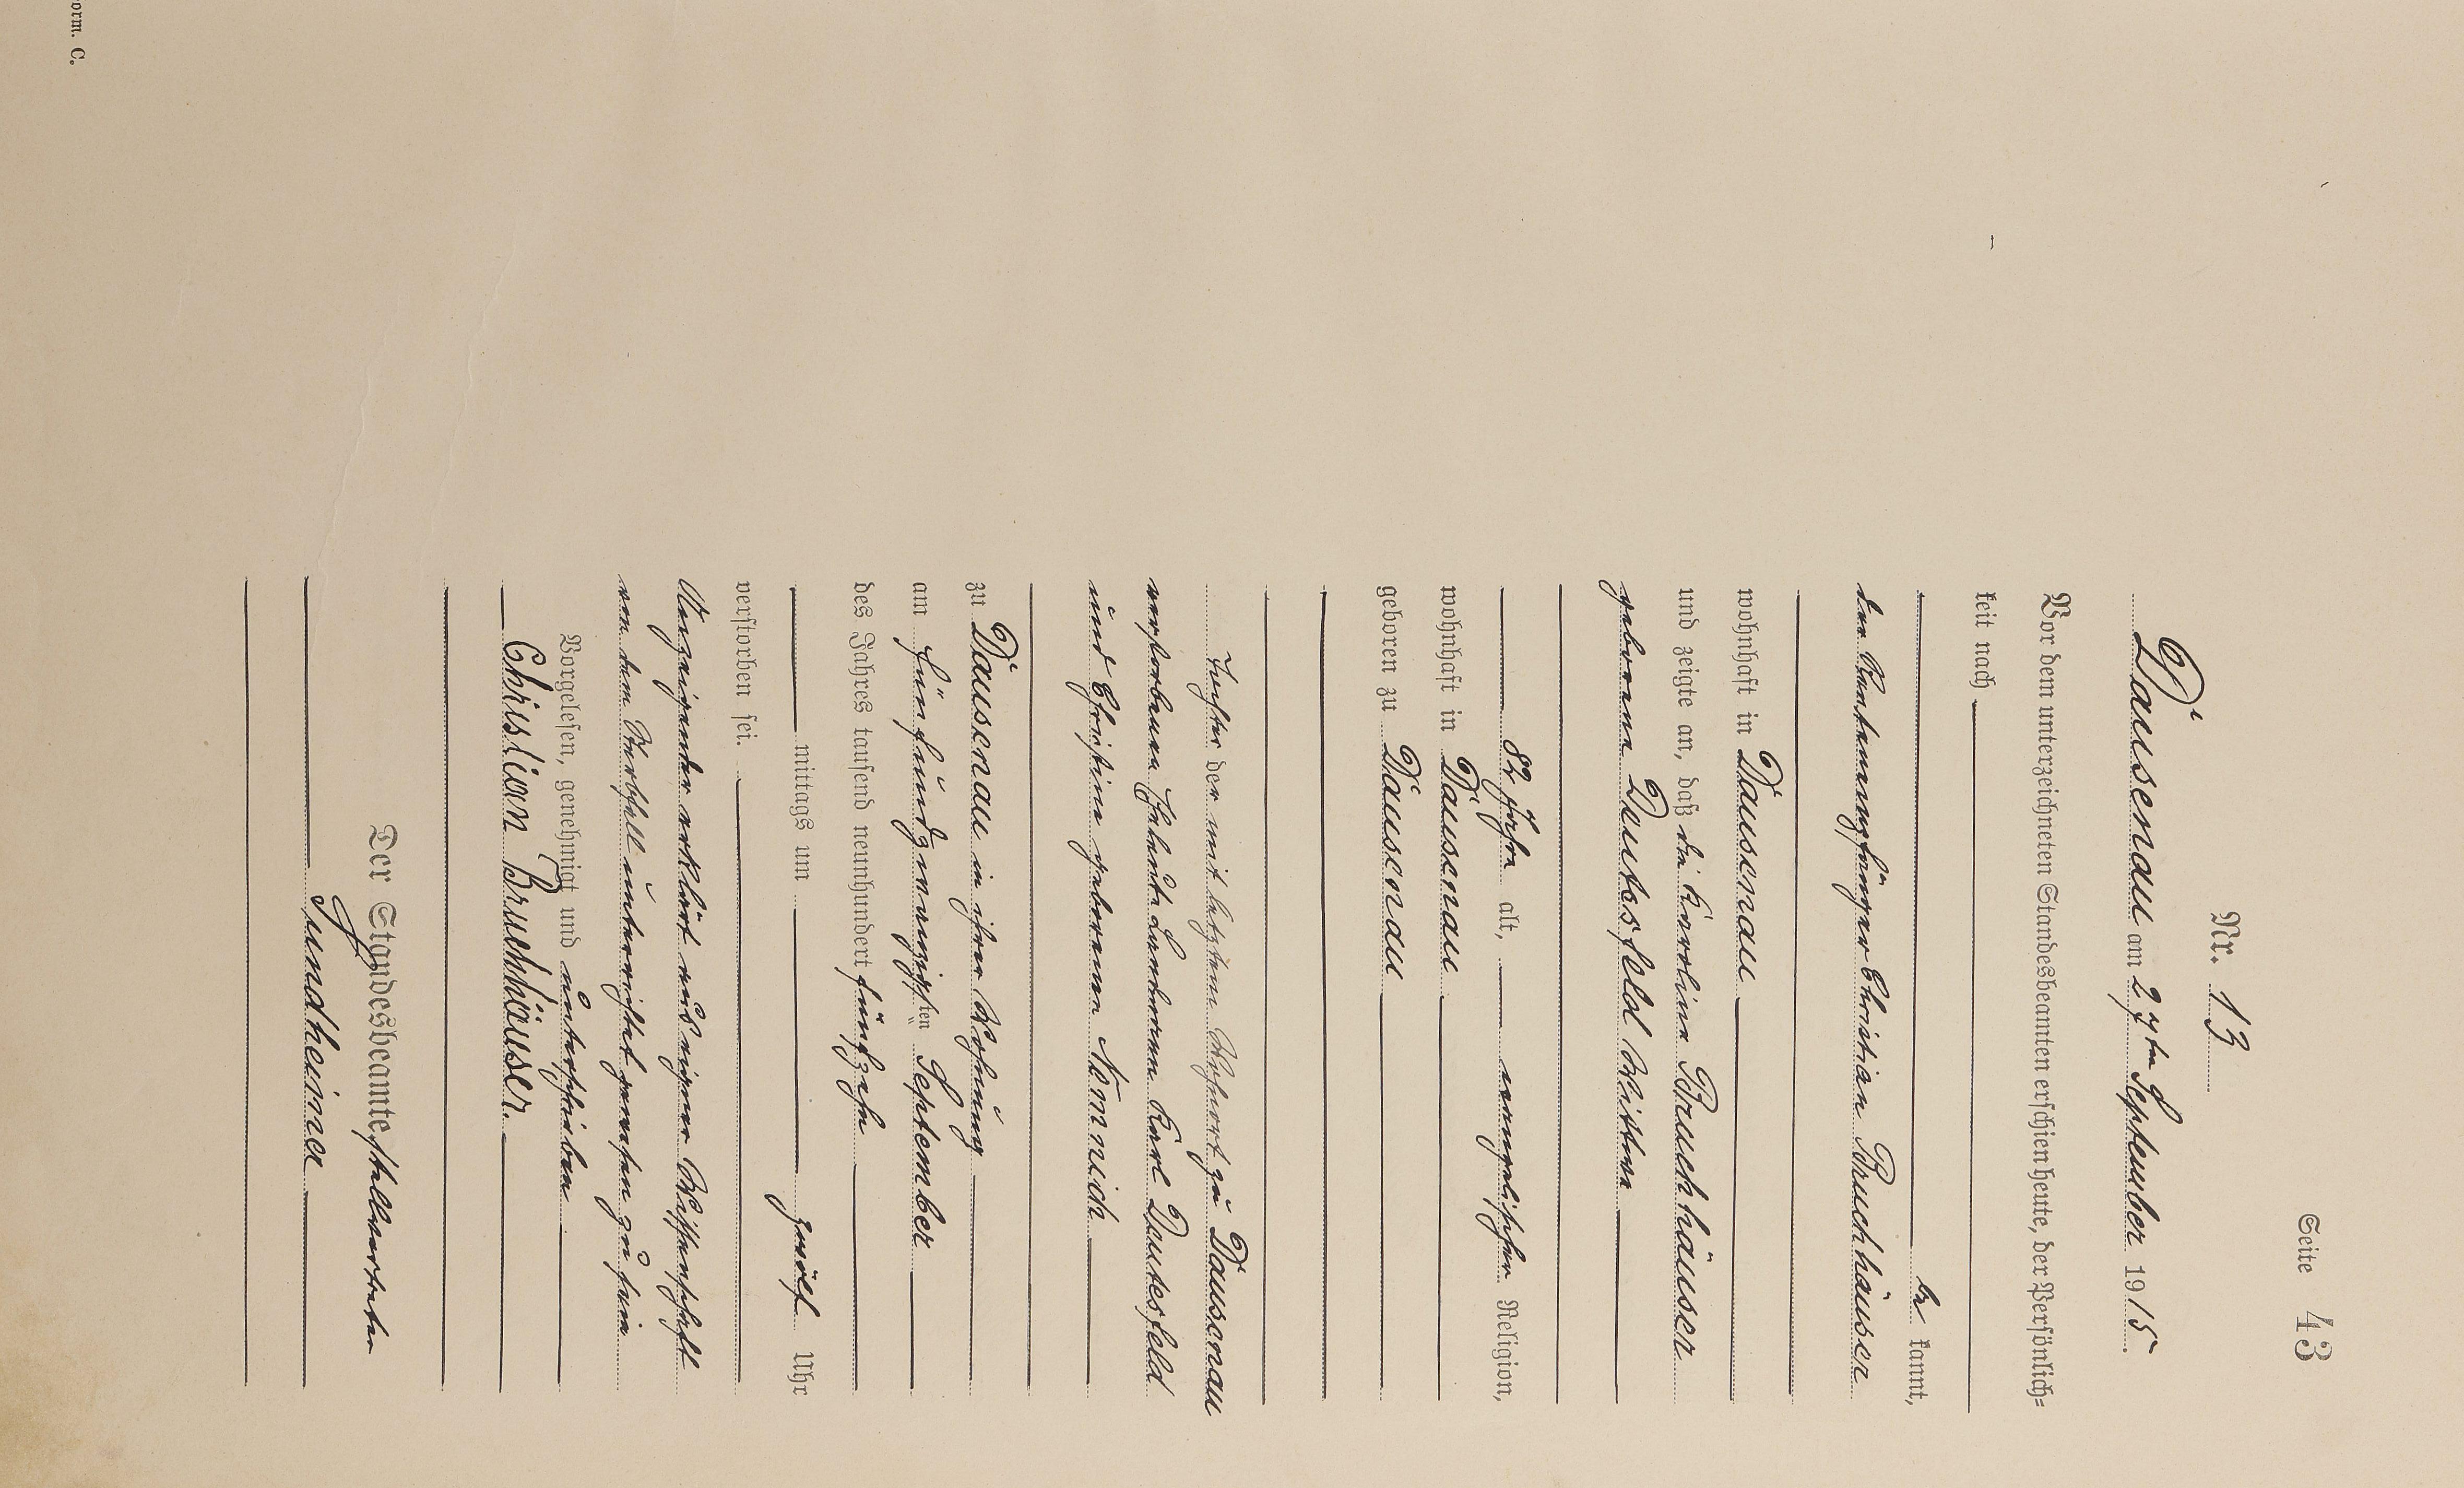 Seite 43
Nr. 13
Dausenau am 27ten September 1915
Vor dem unterzeichneten Standesbeamten erschien heute, der Persönlich=
keit nach
be kannt,
der Rentenempfänger Christian Bruchhäuser
wohnhaft in Dausenau
und zeigte an, daß die Karoline Bruchhäuser
geborene Deutesfeld Witwe
82 Jahre alt, evangelischer Religion,
wohnhaft in Dausenau
geboren zu Dausenau
Tochter der mit letztem Wohnort zu Dausenau
verstorbenen Eheleute Karl Deutesfeld
und Christine geborene Nomnich
zu Dausenau in ihrer Wohnung
am fünfundzwanzigsten September
des Jahres tausend neunhundert fünfzehn
mittags um zwölf Uhr
verstorben sei.
Anzeigender erklärt aus eigener Wissenschaft
von dem Sterbfall unterrichtet gewesen zu sein
Vorgelesen, genehmigt und unterschrieben
Christian Bruchhäuser.
Der Standesbeamte, Stellvertreter
Jundheimer
orm. C.